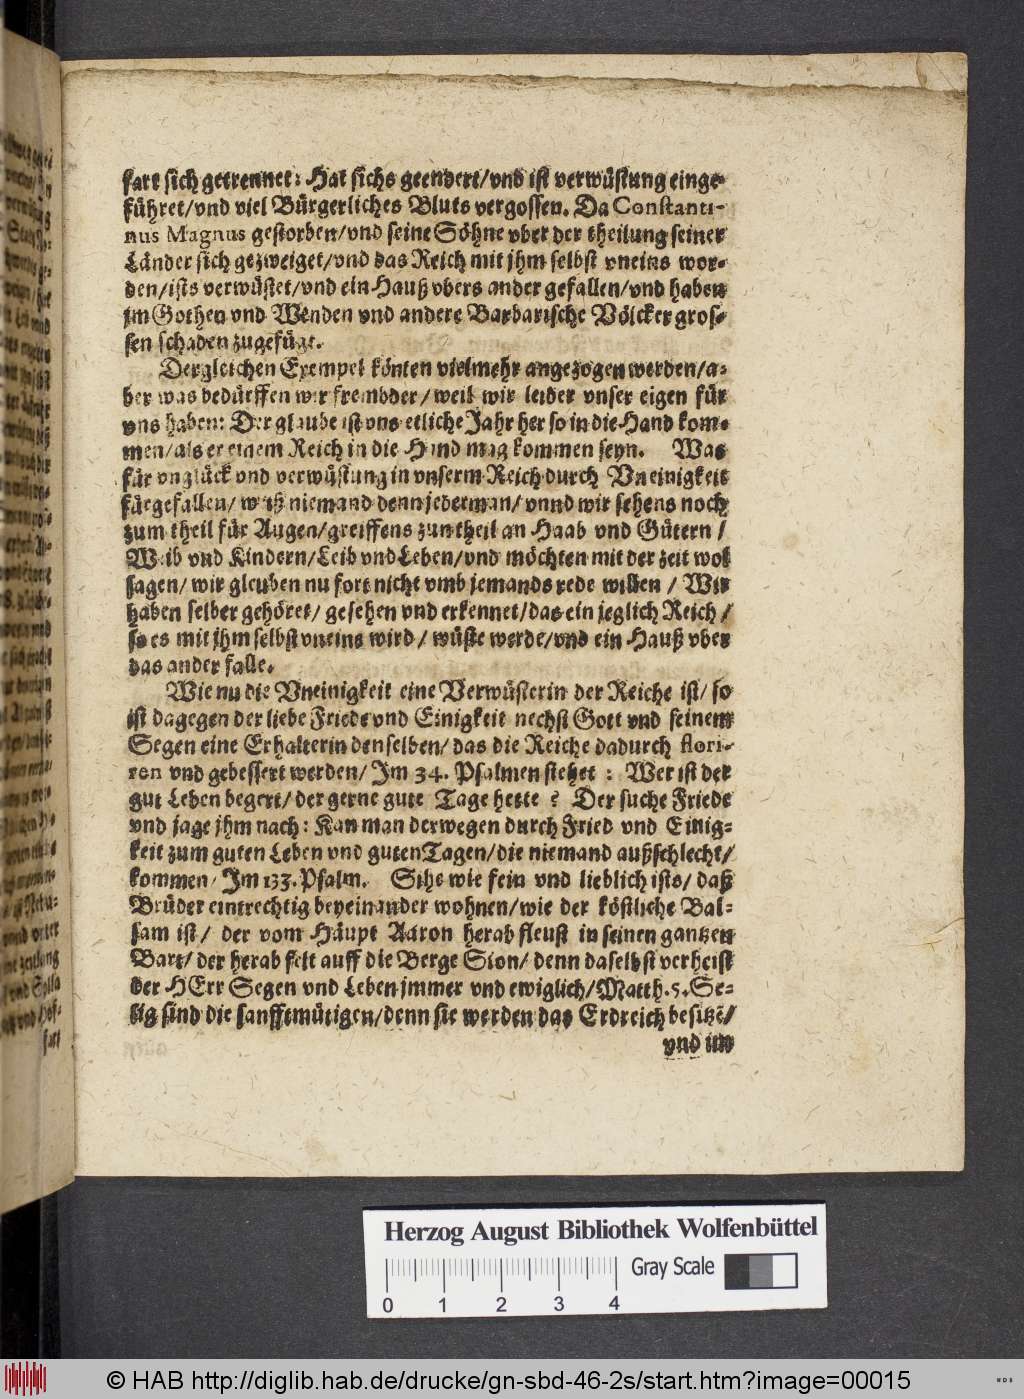 fart sich getrennet: Hat sichs geendert/vnd ist verwüstung einge-
führet/vnd viel Bürgerliches Bluts vergossen. Da Constanti-
nus Magnus gestorben/vnd seine Söhne vber der theilung seiner
Länder sich gezweiget/vnd das Reich mit jhm selbst vneins wor-
den/ists verwüstet/vnd ein Hauß vbers ander gefallen/vnd haben
jm Gothen vnd Wenden vnd andere Barbarische Völcker gros-
sen schaden zugefüget.
Dergleichen Exempel könten vielmehr angezogen werden/a-
ber was bedürffen wir frembder/weil wir leider vnser eigen für
vns haben: Der glaube ist vns etliche Jahr her so in die Hand kom-
men/als er einem Reich in die Hand mag kommen seyn. Was
für vnglück vnd verwüstung in vnserm Reich durch Vneinigkeit
fürgefallen/ weiß niemand denn jederman/vnnd wir sehens noch
zum theil für Augen/greiffens zun theil an Haab vnd Gütern /
Weib vnd Kindern/Leib vnd Leben/vnd möchten mit der zeit wol
sagen/ wir gleuben nu fort nicht vmb jemands rede willen / Wir
haben selber gehöret/ gesehen vnd erkennet/das ein jeglich Reich /
so es mit jhm selbst vneins wird/ wüste werde/vnd ein Hauß vber
das ander falle.
Wie nu die Vneinigkeit eine Verwüsterin der Reiche ist/ so
ist dagegen der liebe Friede vnd Einigkeit nechst Gott vnd seinem
Segen eine Erhalterin denselben/ das die Reiche dadurch flori-
ren vnd gebessert werden/ Im 34. Psalmen stehet : Wer ist der
gut Leben begert/ der gerne gute Tage hette ? Der suche Friede
vnd jage jhm nach: Kan man derwegen durch Fried vnd Einig-
keit zum guten Leben vnd guten Tagen/die niemand außschlecht/
kommen/ Im 133. Psalm. Sihe wie fein vnd lieblich ists/ daß
Brüder eintrechtig beyeinander wohnen/wie der köstliche Bal-
sam ist/ der vom Häupt Aaron herab fleust in seinen gantzen
Bart/ der herab felt auff die Berge Sion/ denn daselbst verheist
der HErr Segen vnd Leben jmmer vnd ewiglich/Matth. 5. Se-
lig sind die sanfftmütigen/denn sie werden das Erdreich besitzē/
vnd im
Herzog August Bibliothek Wolfenbüttel
Gray Scale
0 1 2 3 4
© HAB http://diglib.hab.de/drucke/gn-sbd-46-2s/start.htm?image=00015